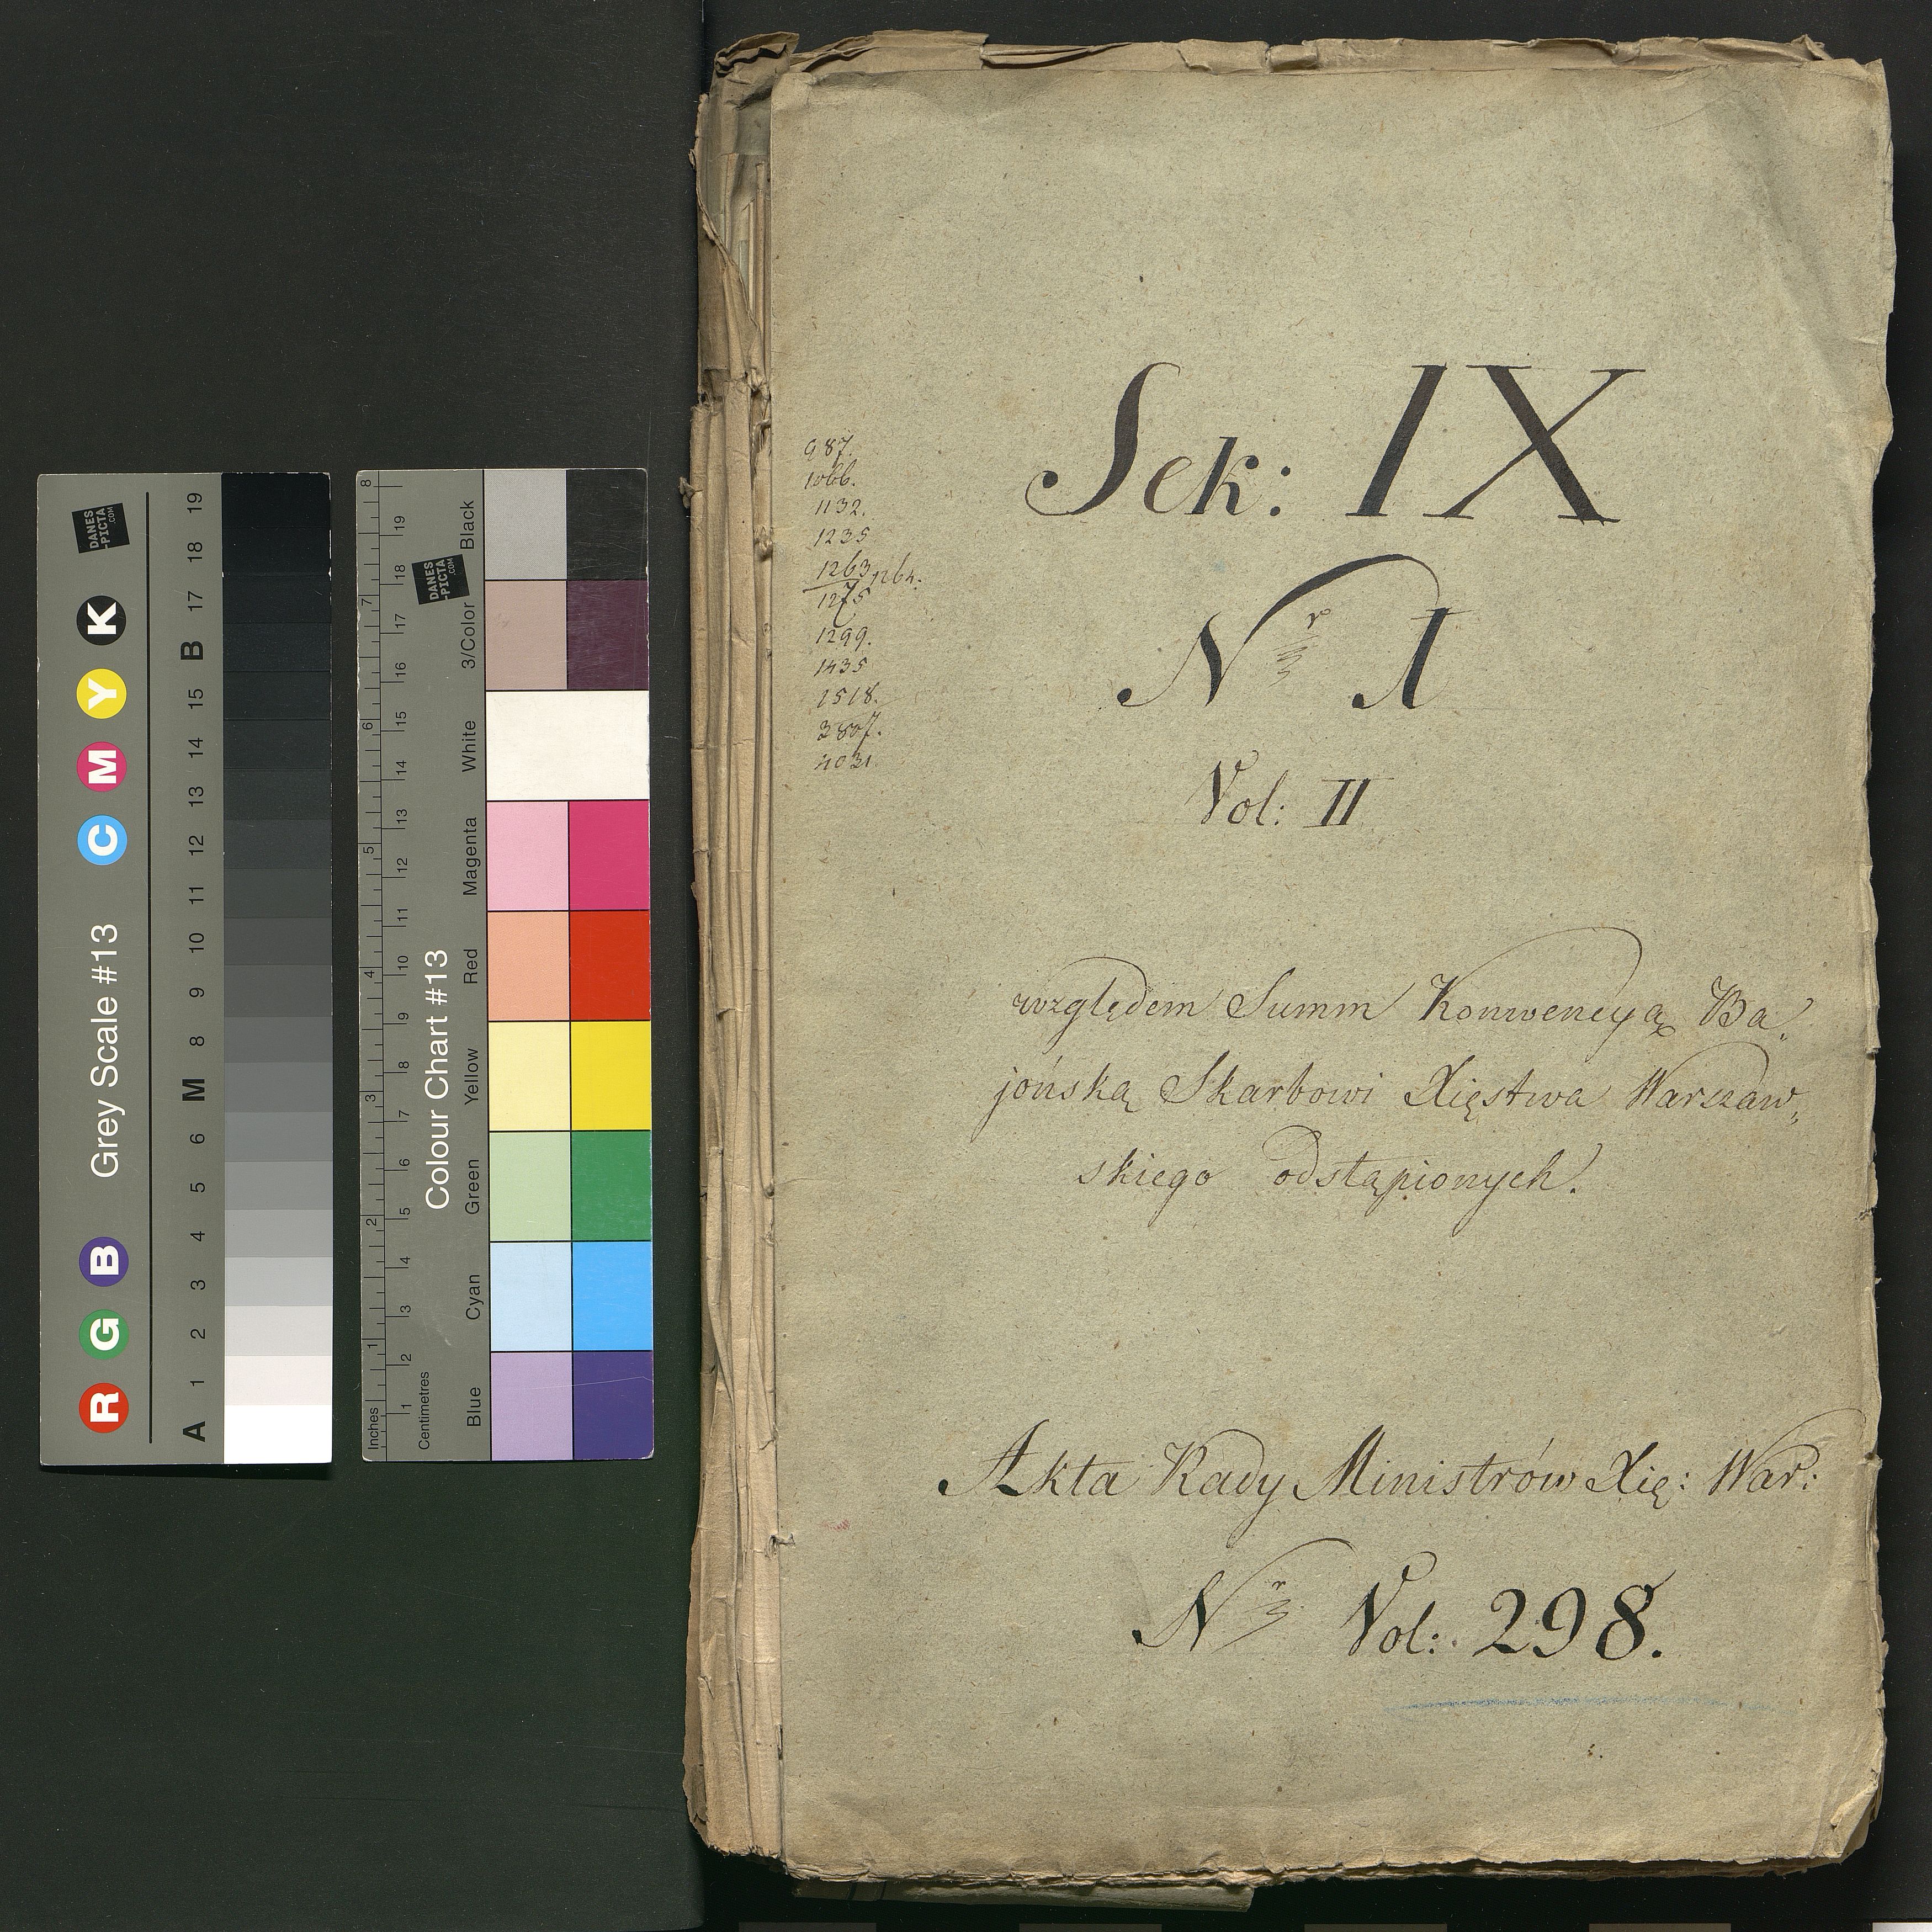 Sek: IX
Nr 1
Vol: II
987.
1066.
1132.
1235
1263 1264.
1275
1299.
1435
1518.
3807.
4031.
względem Summ Konwencyą Ba,
jońską Skarbowi Xięstwa Warszaw,
skiego odstąpionych.
Akta Rady Ministrów Xię: War:
Nr Vol: 298.
Grey Scale #13
R G B C M Y K
A 1 2 3 4 5 6 M 8 9 10 11 12 13 14 15 B 17 18 19
DANES
-PICTA
.COM
Colour Chart #13
Blue Cyan Green Yellow Red Magenta White 3/Color Black
Inches 1 2 3 4 5 6 7 8
Centimetres 1 2 3 4 5 6 7 8 9 10 11 12 13 14 15 16 17 18 19
DANES
-PICTA
.COM